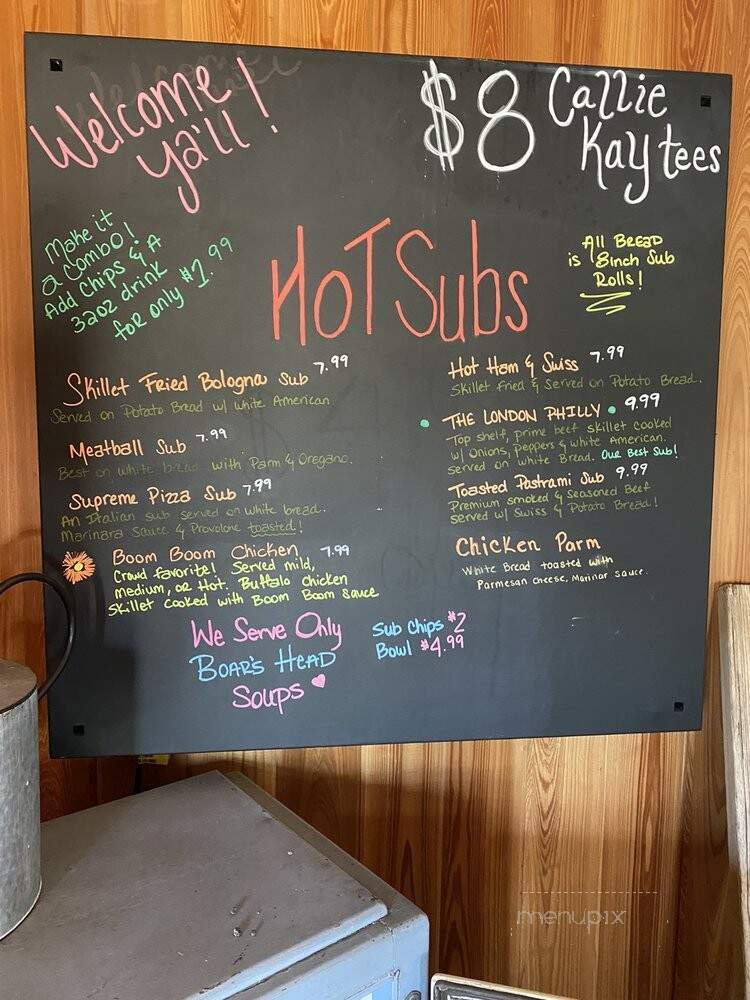 Welcome
ya'll!
$8 Callie
Kay tees
Make it
a combo!
Add Chips & A
32oz drink
for only $1.99
HOT Subs
All BREAD
is 8inch Sub
Rolls!
Skillet Fried Bologna Sub 7.99
Served on Potato Bread w/ white American
Meatball Sub 7.99
Best on white bread with Parm & Oregano.
Supreme Pizza Sub 7.99
An Italian sub served on white bread.
Marinara Sauce & Provolone toasted!
Boom Boom Chicken 7.99
Crowd favorite! Served mild,
medium, or Hot. Buffalo chicken
Skillet cooked with Boom Boom Sauce
Hot Ham & Swiss 7.99
Skillet fried & Served on Potato Bread.
THE LONDON PHILLY 9.99
Top shelf, prime beef skillet cooked
w/ Onions, Peppers & white American.
Served on white Bread. Our Best Sub!
Toasted Pastrami Sub 9.99
Premium smoked & Seasoned Beef
Served w/ Swiss & Potato Bread!
Chicken Parm
White Bread toasted with
Parmesan cheese, Marinar sauce.
We Serve Only
BOAR'S HEAD
Soups
Sub Chips $2
Bowl $4.99
menupix